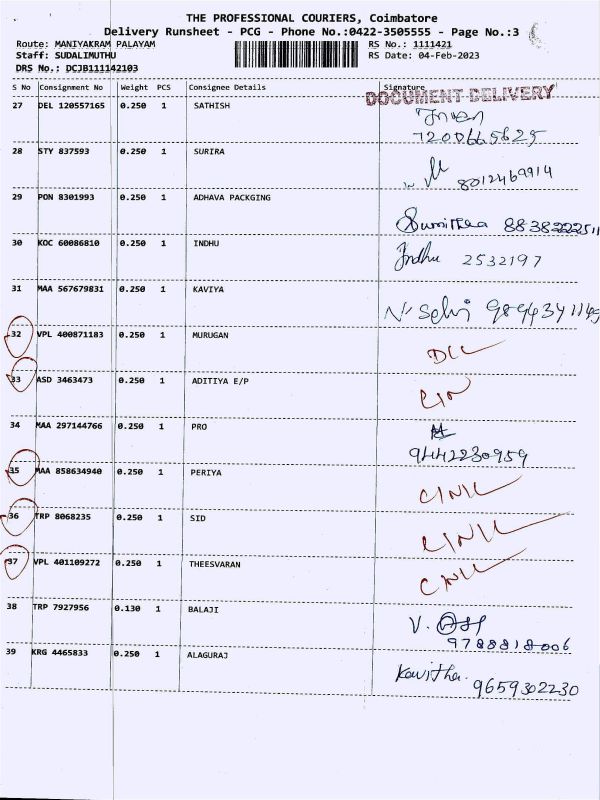 THE PROFESSIONAL COURIERS, Coimbatore
Delivery Runsheet - PCG - Phone No.:0422-3505555 - Page No.:3
Route: MANIYAKRAM PALAYAM RS No.: 1111421
Staff: SUDALIMUTHU RS Date: 04-Feb-2023
DRS No.: DCJB111142103
S No Consignment No Weight PCS Consignee Details Signature
DOCUMENT DELIVERY
27 DEL 120557165 0.250 1 SATHISH
7200665625
28 STY 837593 0.250 1 SURIRA
8012469914
29 PON 8301993 0.250 1 ADHAVA PACKGING
Sumithaa 8838222511
30 KOC 60086810 0.250 1 INDHU
Indhu 2532197
31 MAA 567679831 0.250 1 KAVIYA
N. Selvi
32 VPL 400871183 0.250 1 MURUGAN
33 ASD 3463473 0.250 1 ADITIYA E/P
34 MAA 297144766 0.250 1 PRO
9442230959
35 MAA 858634940 0.250 1 PERIYA
36 TRP 8068235 0.250 1 SID
37 VPL 401109272 0.250 1 THEESVARAN
38 TRP 7927956 0.130 1 BALAJI
9788818006
39 KRG 4465833 0.250 1 ALAGURAJ
Kavitha. 9659302230